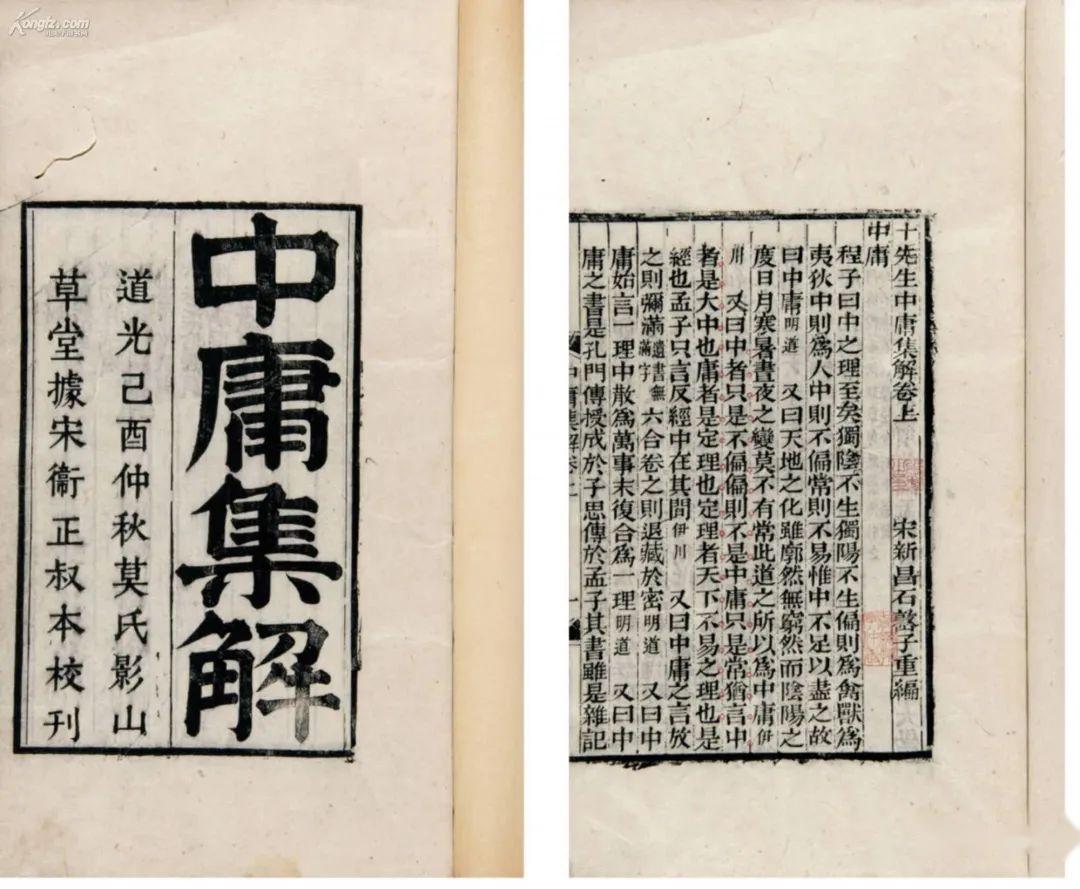 Kongfz.com
中庸集解
道光己酉仲秋莫氏影山
草堂據宋衞正叔本校刊
十先生中庸集解卷上 宋新昌石𡼖子重編
中庸
程子曰中之理至矣獨陰不生獨陽不生偏則爲禽獸爲
夷狄中則爲人中則不偏常則不易惟中不足以盡之故
曰中庸明道 又曰天地之化雖廓然無窮然而陰陽之
度日月寒暑晝夜之變莫不有常此道之所以爲中庸伊
川 又曰中者只是不偏偏則不是中庸只是常猶言中
者是大中也庸者是定理也定理者天下不易之理也是
經也孟子只言反經中在其間伊川 又曰中庸之言放
之則彌滿遺書無滿字六合卷之則退藏於密明道 又曰中
庸始言一理中散爲萬事末復合爲一理明道 又曰中
庸之書是孔門傳授成於子思傳於孟子其書雖是雜記